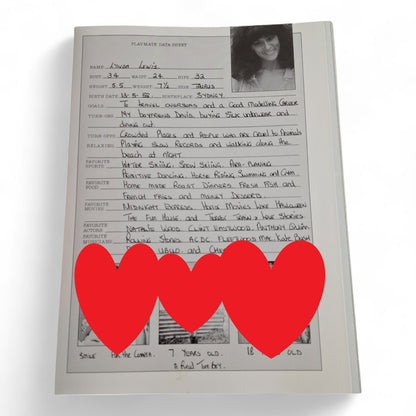 PLAYMATE DATA SHEET
NAME: Lynda Lewis
BUST: 34 WAIST: 24 HIPS: 32
HEIGHT: 5.5. WEIGHT: 7½ SIGN: Taurus
BIRTH DATE: BIRTHPLACE: Sydney
GOALS: To travel overseas and a Good Modelling Career
TURN-ONS: My Boyfriend Davis, buying Silk underwear and
dining out
TURN-OFFS: Crowded Places and People who are cruel to Animals
RELAXING: Playing slow Records and walking along the
beach at night
FAVORITE SPORTS: Water Skiing, Snow Skiing,
Primitive Dancing, Horse Riding Swimming and Gym
FAVORITE FOOD: Home made Roast Dinners, Fresh Fish and
French Fries and Many Desserts
FAVORITE MOVIES: Midnight Express, Horror Movies Like Halloween
The Fun House and Terror Train & Love Stories
FAVORITE ACTORS: Natalie Wood, Clint Eastwood, Anthony Quinn
FAVORITE MUSICIANS: Rolling Stones, AC.DC, Fleetwood Mac, Kate Bush
UB40 and
Smile For the Camera. 7 Years old. 18 OLD
A Real Tom Boy.